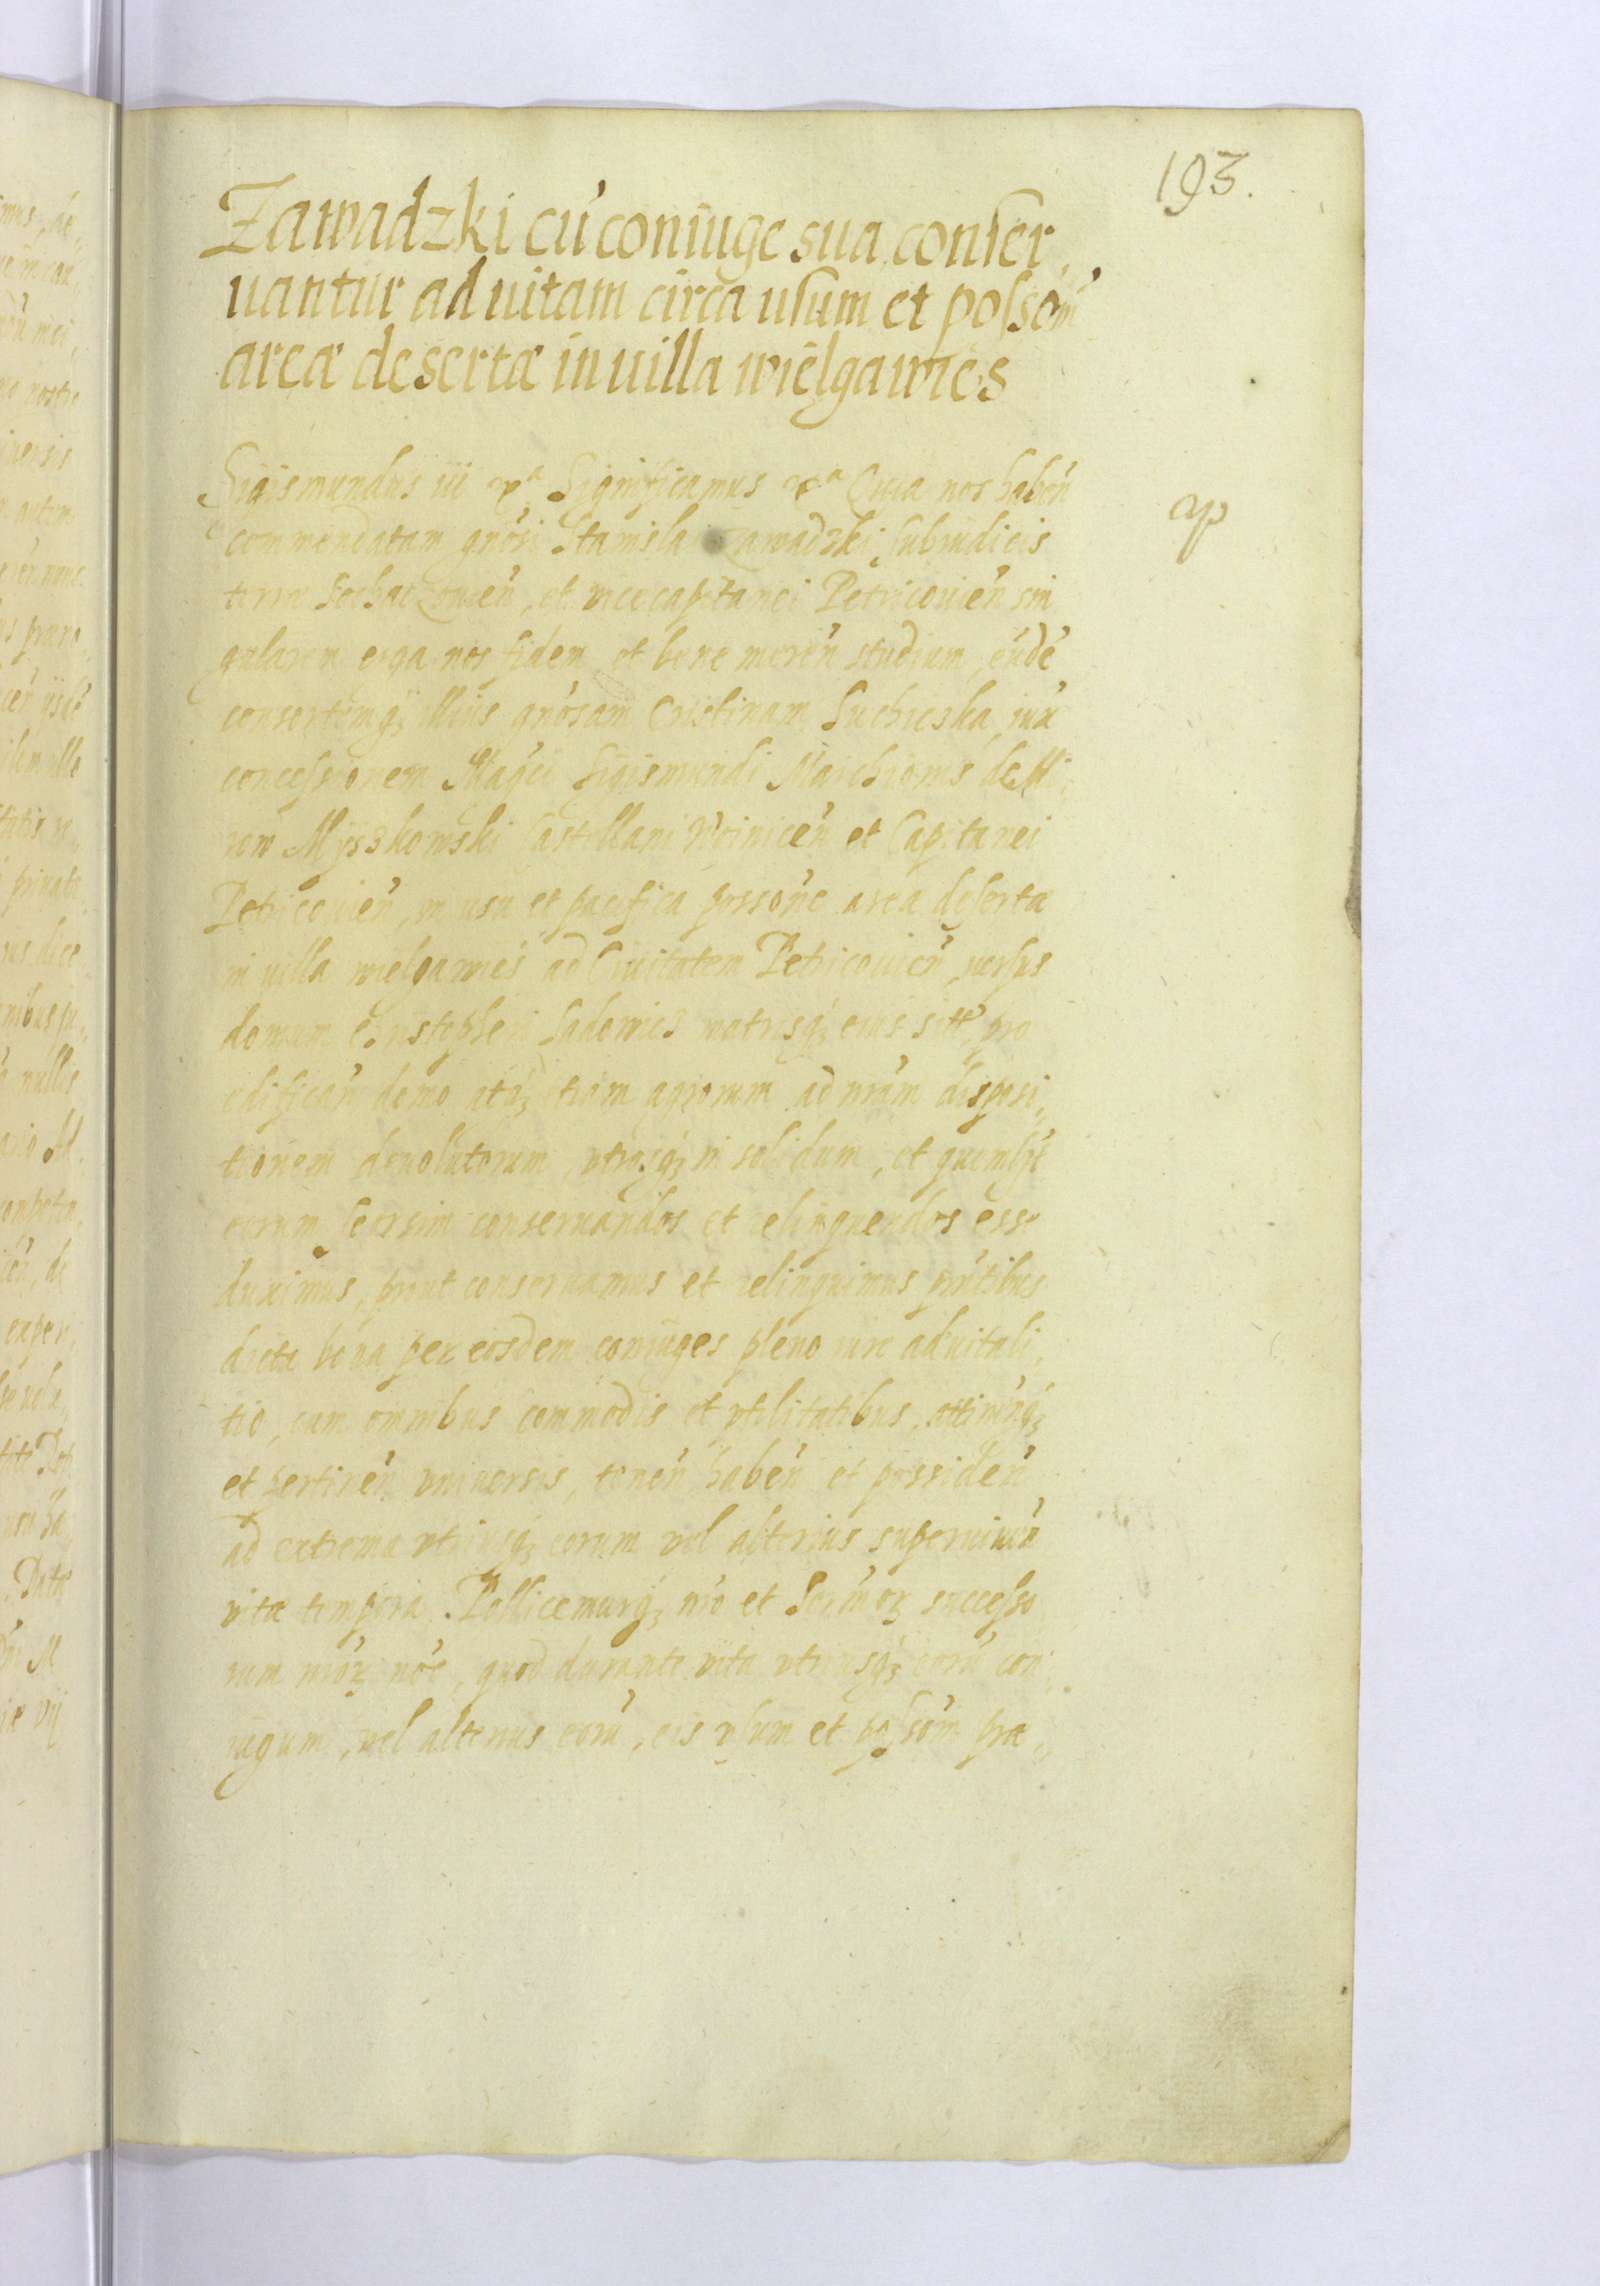 193.
Zawadzki cú coniuge sua conser,
uantur ad uitam circa usum et possoḿ
areæ desertæ in uilla wielgawies
Sigismundus iii Significamus Quia nos habeń
commendatam gnósi Stanisla zawadzki, Subiudicis
terræ Sochaczouień, et vicecapitanei Petricouień sin
gularem erga nos fidem et bene mereń studium, eúdé
consortemq; illius gnósam Cristinam Suchicska iux
concessionem Magći Sigismundi Marchionis de Mi,
row Myszkowski Castellani Woiniceń et Capitanei
Petricouień, in usu et pacifica possóne area deserta
in uilla wielgawies ad Ciuitatem Petricouień, uersus
domum Cristopheri Sadowic matrisq; eius sitæ, pro
edificań domo atq; etiam agrorum ad nrám disposi,
tionem deuolutorum, vtrosq; in solidum, et quemlibet
eorum seorsim conseruandos et relinquendos esse
duximus, prout conseruamus et relinquimus pńtibus
dicta bona per eosdem coniuges pleno iure aduitali,
tio, cum omnibus commodis et vtilitatibus, attinenq;
et pertineń vniuersis, teneń habeń et possideń
ad extrema vtriusq; eorum vel alterius superuiueń
vitæ tempora. Pollicemurq; nró et Sermoꝝ successo
rum nróꝝ nóe, quod durante vita vtriusq; eorú con,
iugum, vel alterius eorú, eis vsum et possóm præ,,